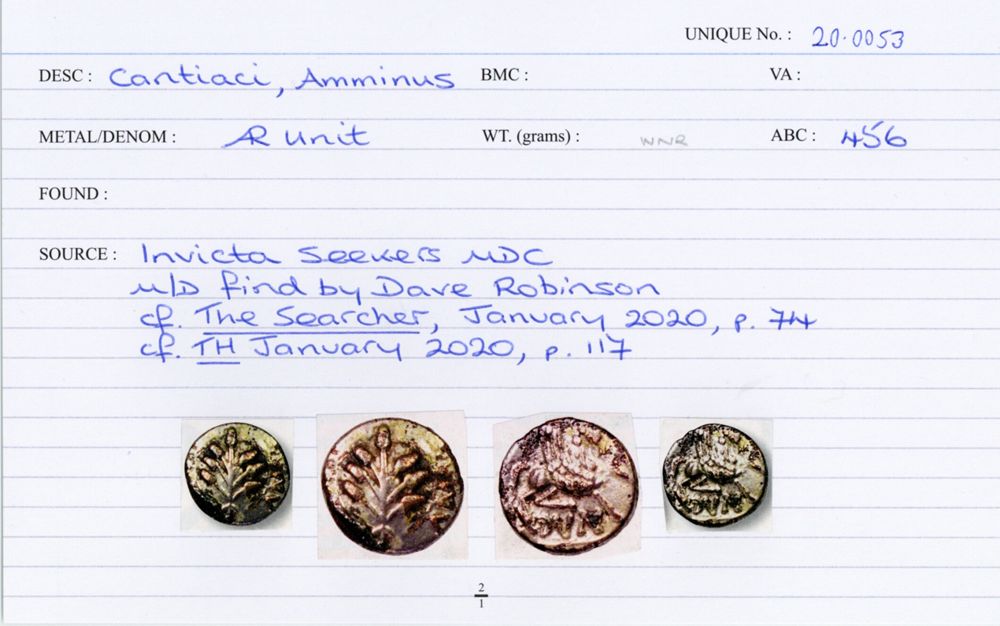 UNIQUE No. : 20.0053
DESC : Cantiaci, Amminus BMC : VA :
METAL/DENOM : AR unit WT. (grams) : WNR ABC : 456
FOUND :
SOURCE : Invicta Seekers MDC
M/D find by Dave Robinson
cf. The Searcher, January 2020, p. 74
cf. TH January 2020, p. 117
2
1